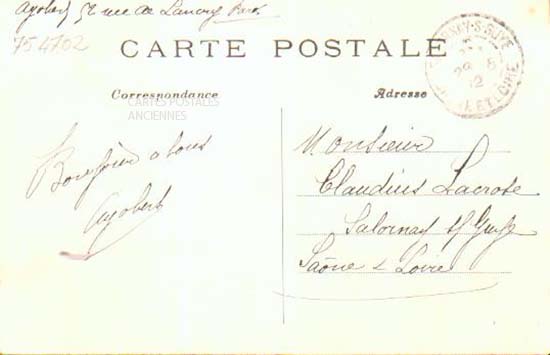 Ayobert 52 rue de Lancry Paris
754702
CARTE POSTALE
Correspondance
Adresse
CARTES POSTALES
ANCIENNES
Bonjour a tous
Ayobert
Monsieur
Claudius Lacrote
Salornay s/ Guye
Saône & Loire